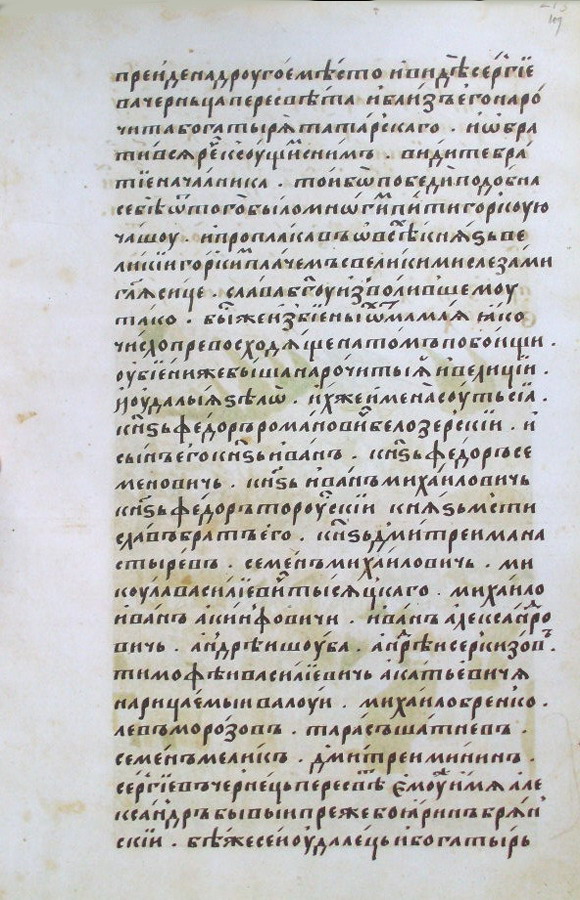 прейде на другое мѣсто и видѣ сергїе
ва черньца пересвѣта и близъ его наро
чита богатырѧ татарскаго . и ѡбра
тивсѧ рече к сущи с нимъ . видите бра
тїе началника . той бѡ победи подобна
себѣ ѿ того было многи пити горкую
чашоу . и проплакавъ ѡ всѣ кнѧѕь ве
ликїи горки плачемъ с великими слезами
глѧ сице . слава бгоу изволившемоу
тако . бы же избїены ѿ мамаѧ ꙗко
число превосходѧще на томъ побоищи .
оубїени же быша нарочитыꙗ и велиции .
и оудалыꙗ ѕѣлѡ . ихже имена соуть сїа .
кнѕь федоръ романови белозерскїи . и
сынъ его кнѕь иванъ . кнѕь федоръ се
меновичь . кнѕь иванъ михаиловичь
кнѕь федоръ тороускїи кнѧѕь мсти
славъ братъ его . кнѕь дмитреи мана
стыревъ . семенъ михаиловичь . ми
коула василїеви тысѧцкаго . михаило
иванъ акинфовичи . иванъ александро
вичь . андрѣи шоуба . андрѣи серкизовъ .
тимофѣи василїевичь акатьевичѧ
нарицаемыи валоуи . михаило бренко .
левъ морозовъ . тарасъ шатневъ .
семенъ меликъ . дмитреи мининъ .
сергїевъ чернець пересвѣ емоуже имѧ але
ксандръ бывыи преже боꙗринъ брѧн
скїи . бѣ же сеи оудалець и богатырь